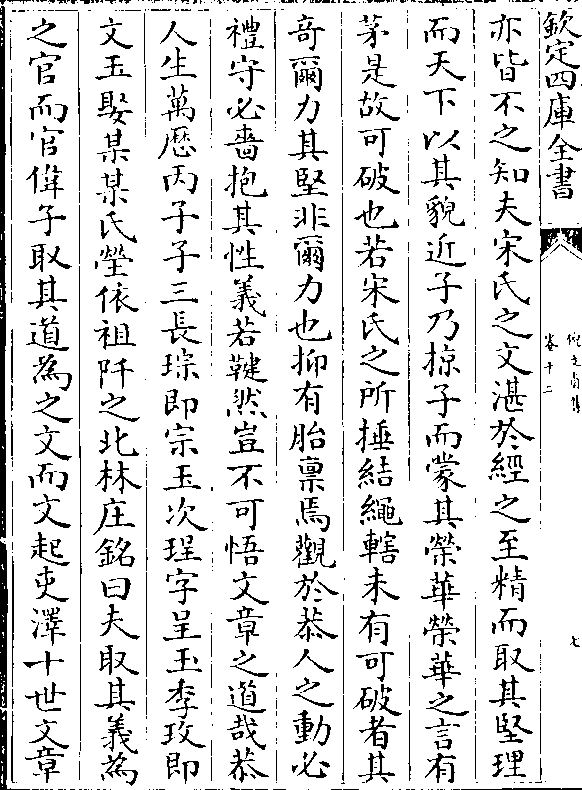 欽定四庫全書
倪文貞集
卷十二
七
亦皆不之知夫宋氏之文湛於經之至精而取其堅理
而天下以其貌近子乃掠子而蒙其榮華榮華之言有
茅是故可破也若宋氏之所捶結繩轄未有可破者其
奇爾力其堅非爾力也抑有胎稟焉觀於恭人之動必
禮守必嗇抱其性義若鞬然豈不可悟文章之道哉恭
人生萬厯丙子子三長琮即宗玉次珵字呈玉季玫即
文玉娶某某氏瑩依祖阡之北林庄銘曰夫取其義為
之官而官偉子取其道為之文而文起吏澤十世文章